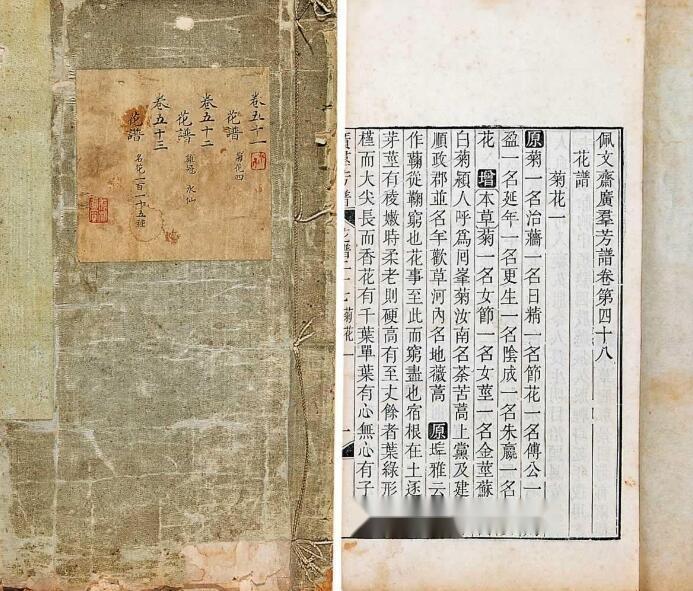 卷五十一
花譜 菊花四
卷五十二
花譜 雞冠 水仙
卷五十三
花譜 名花一百一十五種
佩文齋廣羣芳譜卷第四十八
花譜
菊花一
原菊一名治蘠一名日精一名節花一名傅公一
盈一名延年一名更生一名陰成一名朱嬴一名
花 增本草菊一名女節一名女莖一名金莖蘇
白菊潁人呼爲囘峯菊汝南名荼苦蒿上黨及建
順政郡並名年歡草河內名地薇蒿 原埤雅云
作蘜從鞠窮也花事至此而窮盡也宿根在土逐
芽莖有稜嫩時柔老則硬高有至丈餘者葉綠形
槿而大尖長而香花有千葉單葉有心無心有子
廣羣芳譜 菊花一